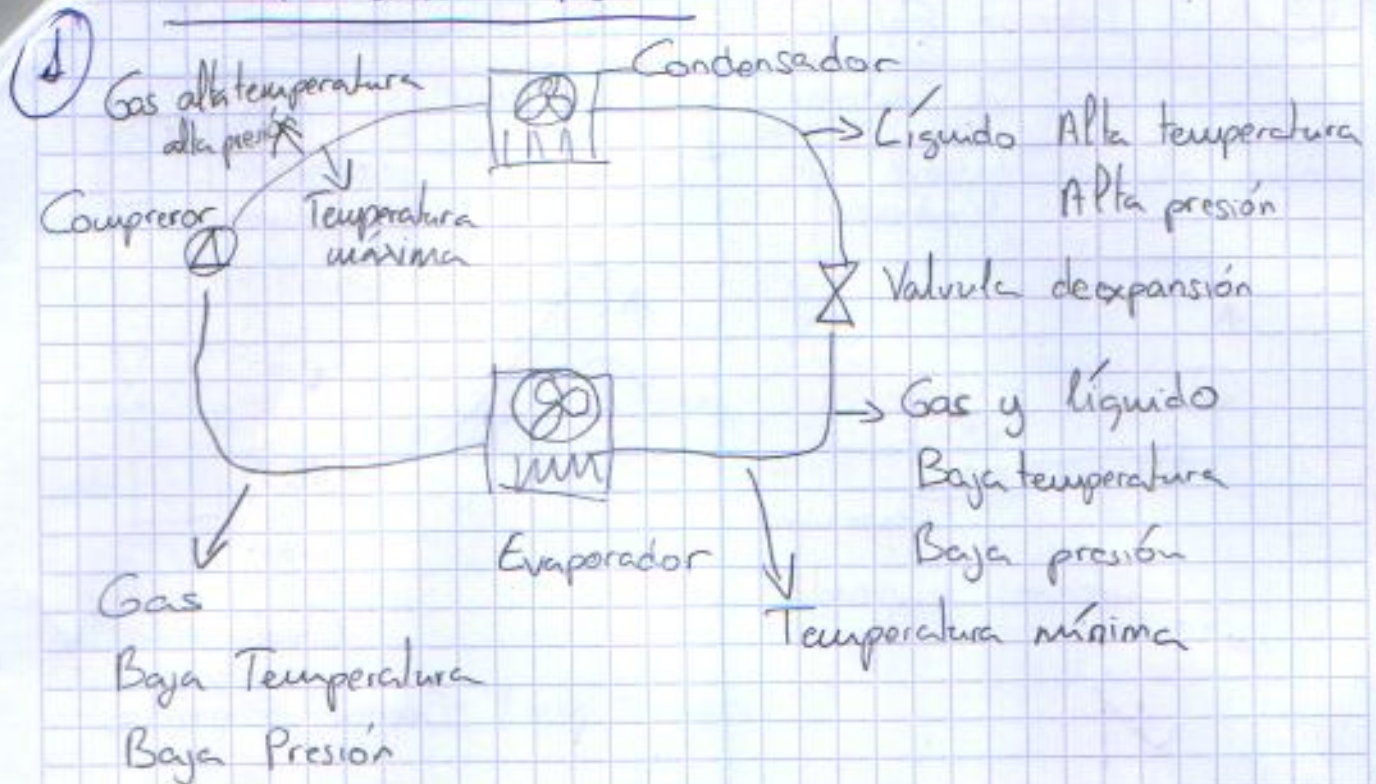 1
Condensador
Gas alta temperatura
alta presión
Líquido Alta temperatura
Alta presión
Compreror
Temperatura
máxima
Valvula de expansión
Gas y líquido
Baja temperatura
Baja presión
Evaporador
Temperatura mínima
Gas
Baja Temperatura
Baja Presión